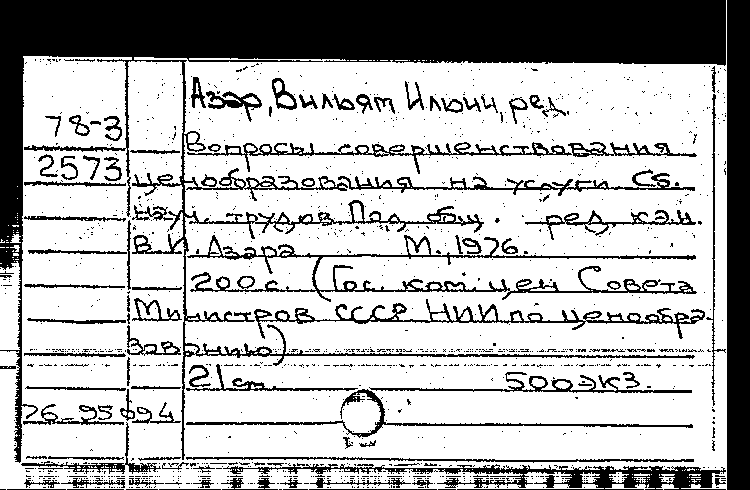 Азар, Вильят Ильич, ред.
78-3
Вопросы совершенствования
2573
ценообразования на услуги Сб.
науч. трудов. Под общ. ред. к.э.н.
В.И. Азара. М., 1976.
200 с. (Гос. ком. цен Совета
Министров СССР НИИ по ценообра-
зованию).
21 см. 500 экз.
76-95094